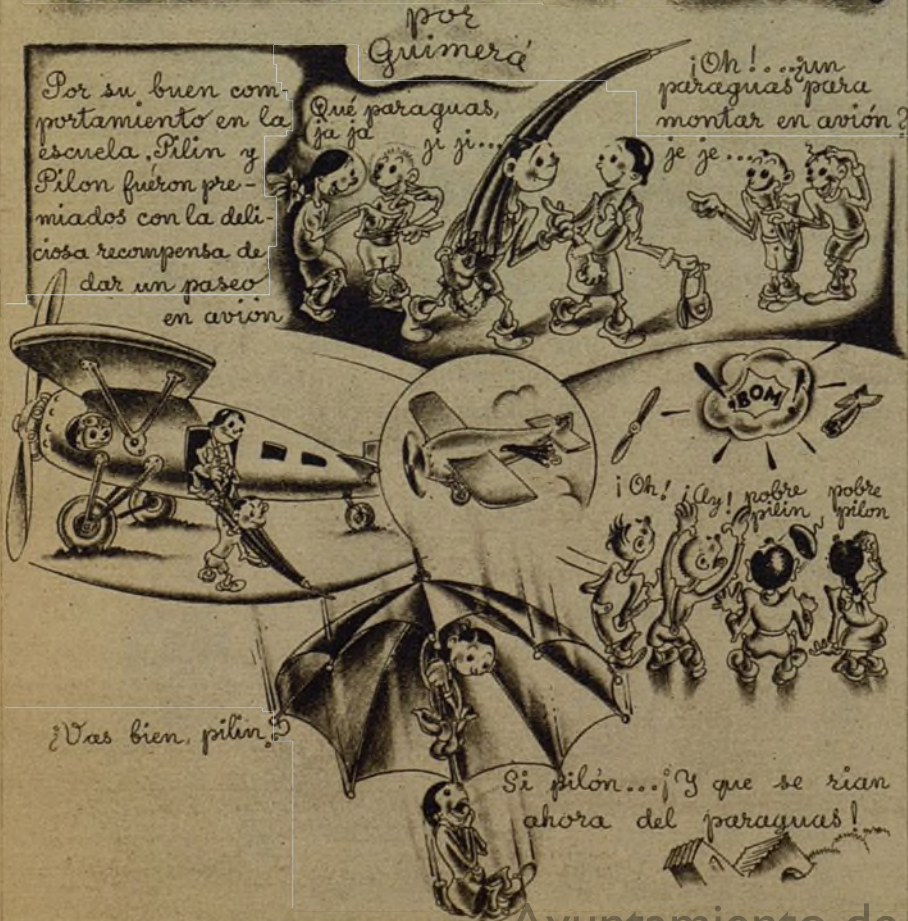 por
Guimerá
Por su buen com-
portamiento en la
escuela, Pilin y
Pilon fueron pre-
miados con la deli-
ciosa recompensa de
dar un paseo
en avión
Qué paraguas,
ja ja
ji ji...
¡Oh!...¿un
paraguas para
montar en avión?
je je...
BOM
¡Oh! ¡Ay! pobre pilin
pobre pilon
¿Vas bien, pilin?
Si pilón...¡Y que se rian
ahora del paraguas!
Ayuntamiento de